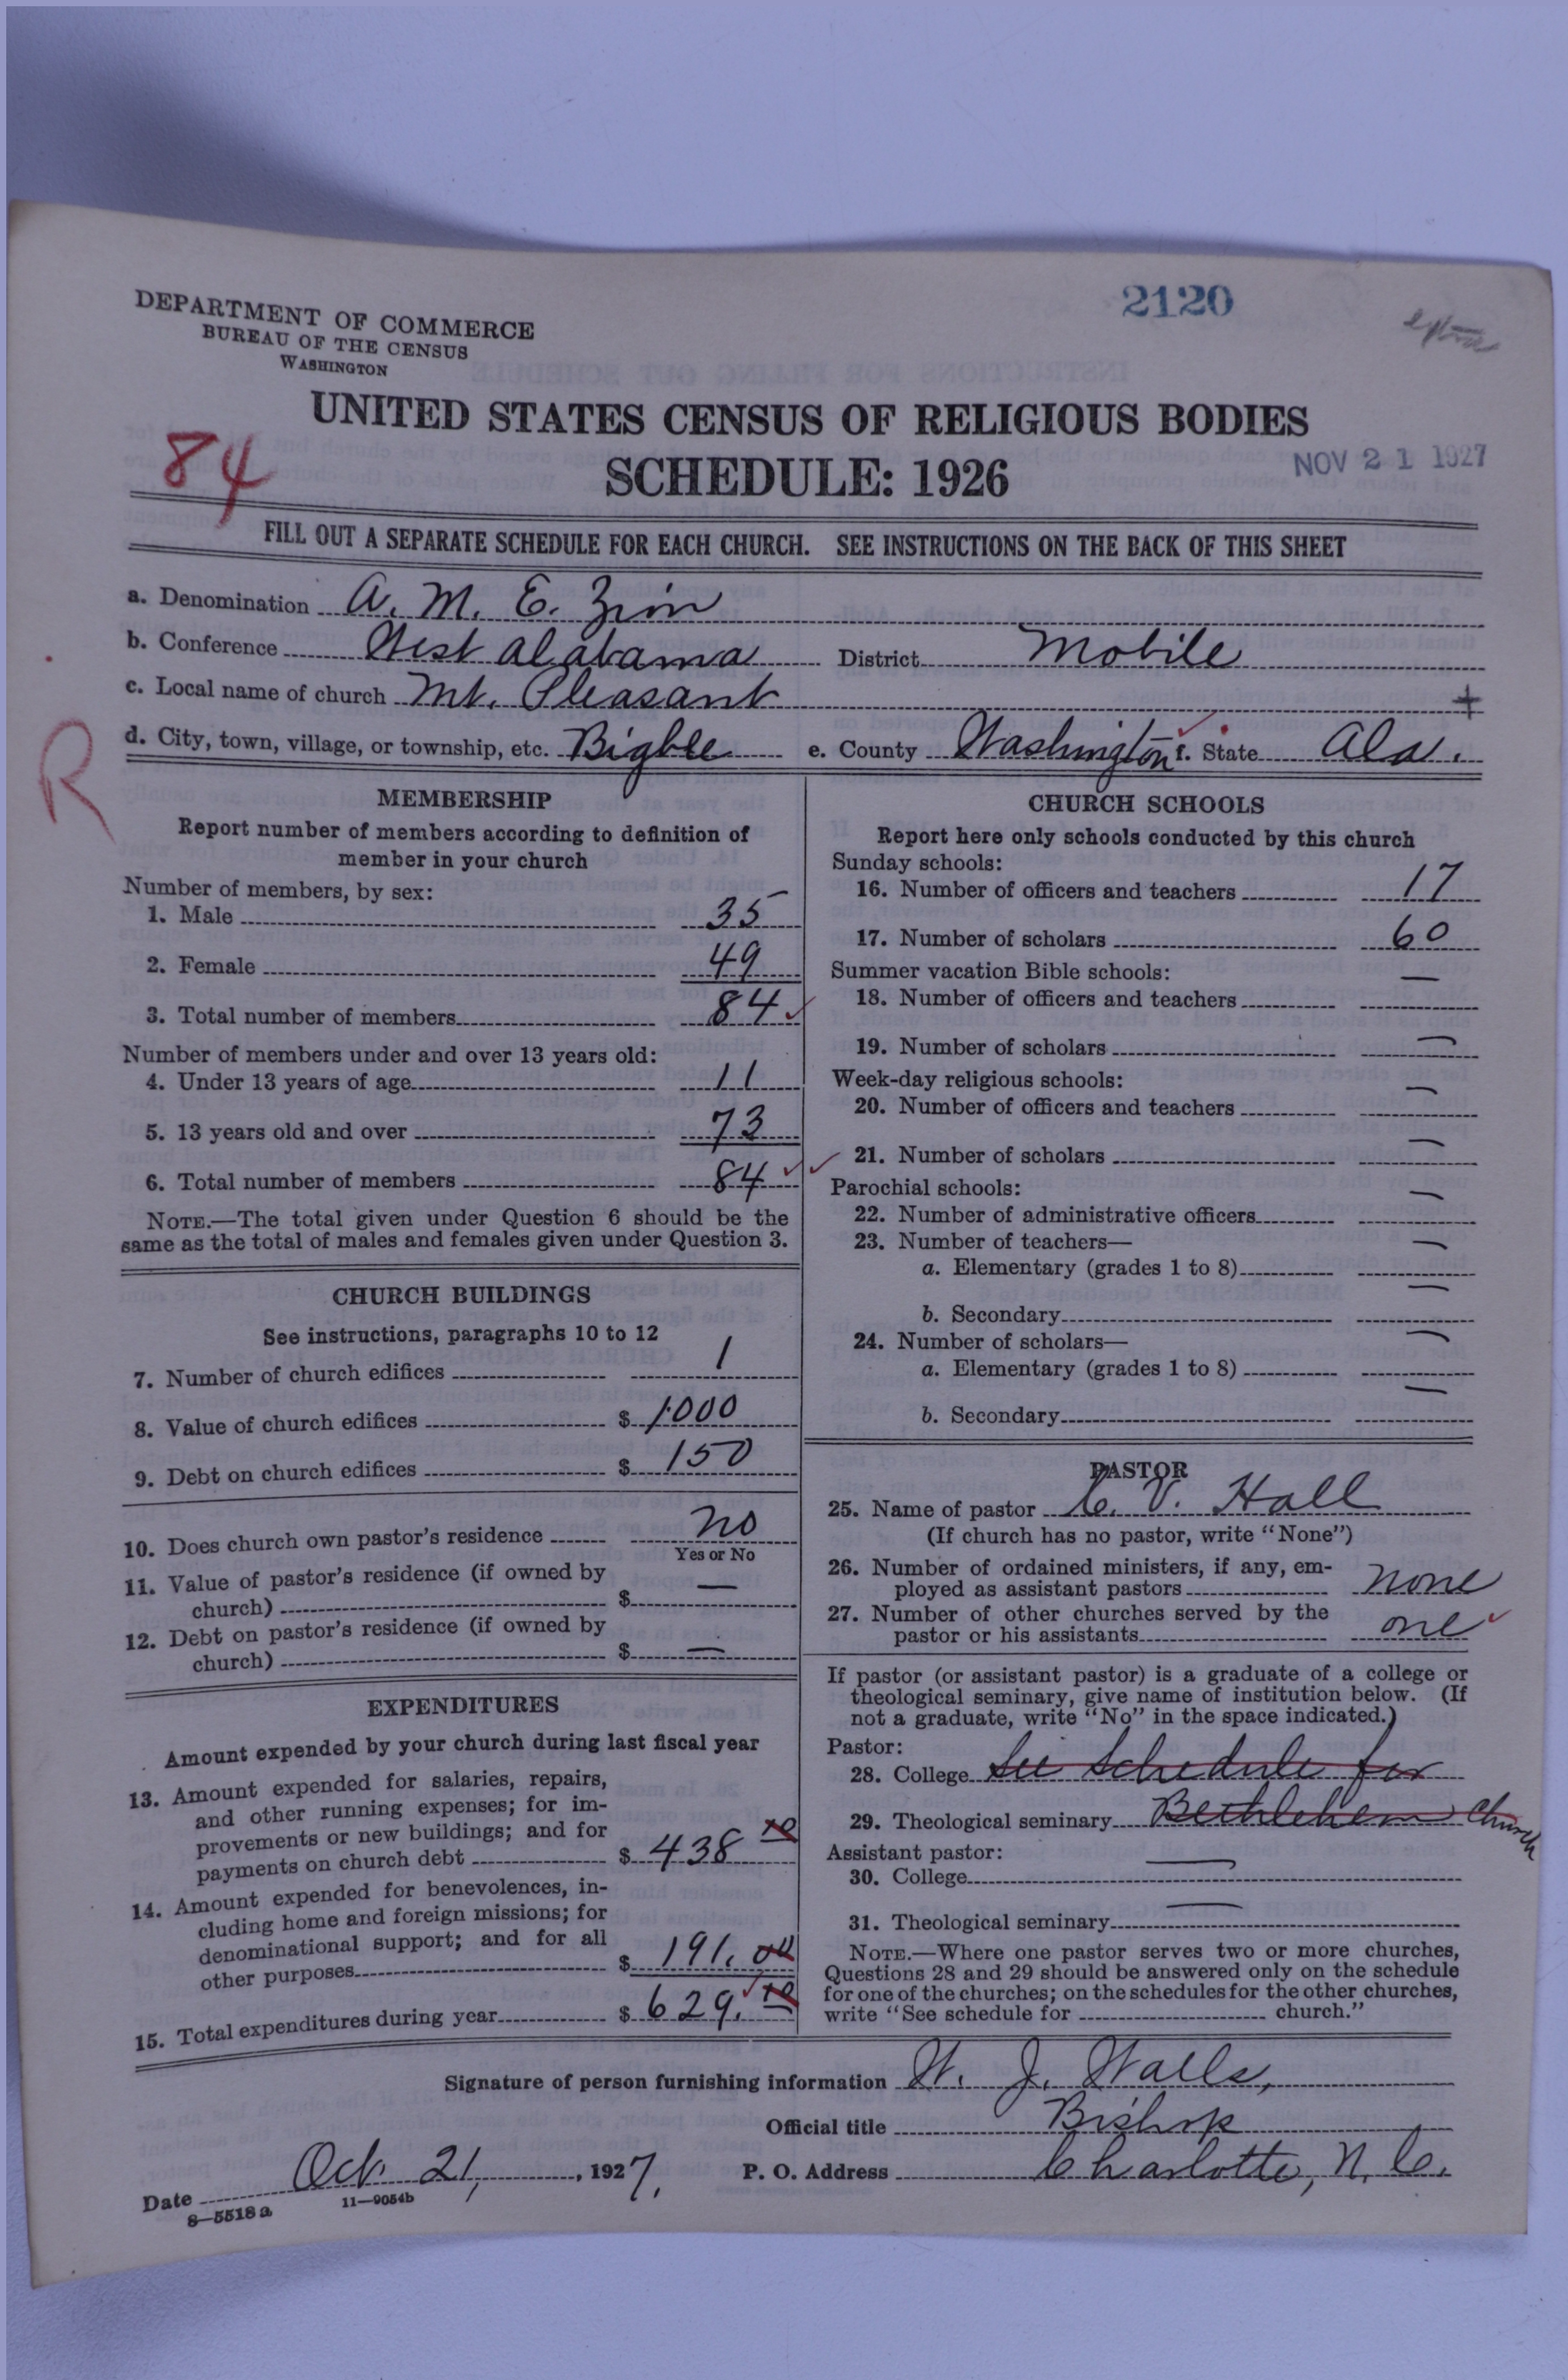 2120
DEPARTMENT OF COMMERCE
BUREAU OF THE CENSUS
WASHINGTON
UNITED STATES CENSUS OF RELIGIOUS BODIES
84
SCHEDULE: 1926
NOV 21 1927
FILL OUT A SEPARATE SCHEDULE FOR EACH CHURCH. SEE INSTRUCTIONS ON THE BACK OF THIS SHEET
a. Denomination A. M. E. Zion
b. Conference West Alabama District Mobile
c. Local name of church Mt. Pleasant +
d. City, town, village, or township, etc. Bigbee e. County Washington f. State Ala.
R
MEMBERSHIP
Report number of members according to definition of
member in your church
Number of members, by sex:
1. Male 35
2. Female 49
3. Total number of members 84 ✓
Number of members under and over 13 years old:
4. Under 13 years of age 11
5. 13 years old and over 73
6. Total number of members 84 ✓ ✓
NOTE.—The total given under Question 6 should be the
same as the total of males and females given under Question 3.
CHURCH BUILDINGS
See instructions, paragraphs 10 to 12
7. Number of church edifices 1
8. Value of church edifices $ 1000
9. Debt on church edifices $ 150
10. Does church own pastor's residence no
Yes or No
11. Value of pastor's residence (if owned by
church) $ —
12. Debt on pastor's residence (if owned by
church) $ —
EXPENDITURES
Amount expended by your church during last fiscal year
13. Amount expended for salaries, repairs,
and other running expenses; for im-
provements or new buildings; and for
payments on church debt $ 438 10
14. Amount expended for benevolences, in-
cluding home and foreign missions; for
denominational support; and for all
other purposes $ 191. 00
15. Total expenditures during year $ 629. 10
CHURCH SCHOOLS
Report here only schools conducted by this church
Sunday schools:
16. Number of officers and teachers 17
17. Number of scholars 60
Summer vacation Bible schools:
18. Number of officers and teachers —
19. Number of scholars —
Week-day religious schools:
20. Number of officers and teachers —
21. Number of scholars —
Parochial schools:
22. Number of administrative officers —
23. Number of teachers—
a. Elementary (grades 1 to 8) —
b. Secondary —
24. Number of scholars—
a. Elementary (grades 1 to 8) —
b. Secondary —
PASTOR
25. Name of pastor C. V. Hall
(If church has no pastor, write "None")
26. Number of ordained ministers, if any, em-
ployed as assistant pastors none
27. Number of other churches served by the
pastor or his assistants one ✓
If pastor (or assistant pastor) is a graduate of a college or
theological seminary, give name of institution below. (If
not a graduate, write "No" in the space indicated.)
Pastor:
28. College See Schedule for
29. Theological seminary Bethlehem Church
Assistant pastor:
30. College —
31. Theological seminary —
NOTE.—Where one pastor serves two or more churches,
Questions 28 and 29 should be answered only on the schedule
for one of the churches; on the schedules for the other churches,
write "See schedule for ______ church."
Signature of person furnishing information W. J. Walls,
Official title Bishop
Date Oct. 21, 1927. P. O. Address Charlotte, N. C.
8—5518a 11—9054b